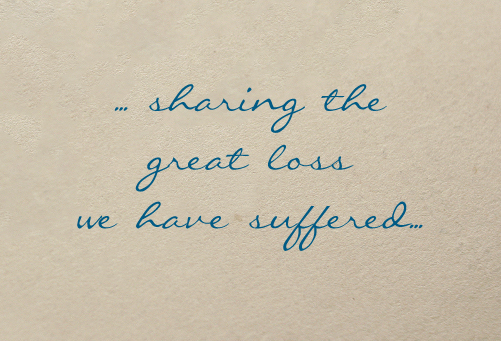 ... sharing the
great loss
we have suffered...